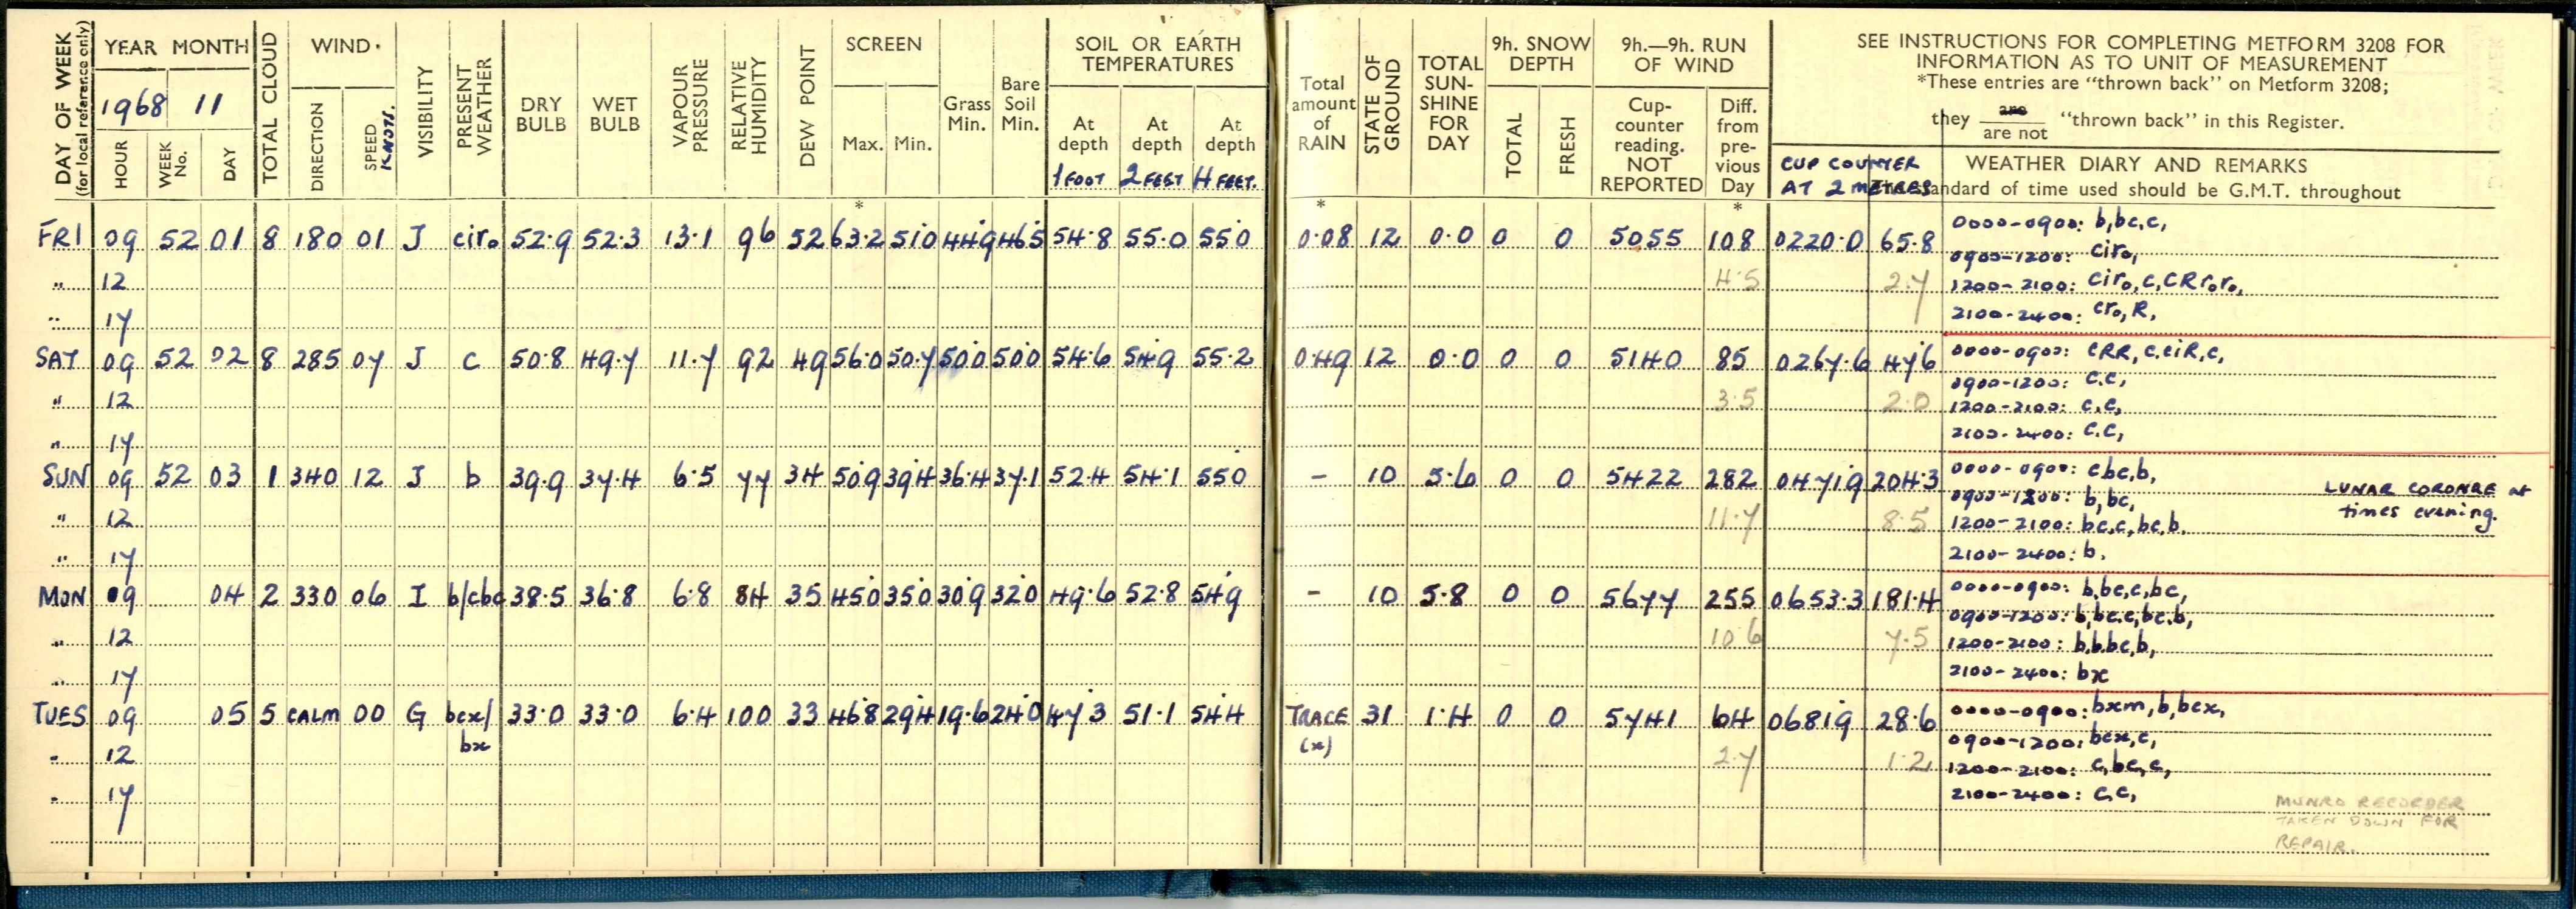 DAY OF WEEK (for local reference only)
YEAR MONTH
1968 11
HOUR WEEK No. DAY
TOTAL CLOUD
WIND.
DIRECTION SPEED KNOTS.
VISIBILITY
PRESENT WEATHER
DRY BULB
WET BULB
VAPOUR PRESSURE
RELATIVE HUMIDITY
DEW POINT
SCREEN
Max. Min.
Grass Min.
Bare Soil Min.
SOIL OR EARTH TEMPERATURES
At depth At depth At depth
1 FOOT 2 FEET 4 FEET.
Total amount of RAIN
STATE OF GROUND
TOTAL SUN-SHINE FOR DAY
9h. SNOW DEPTH
TOTAL FRESH
9h.—9h. RUN OF WIND
Cup-counter reading. NOT REPORTED
Diff. from pre-vious Day
SEE INSTRUCTIONS FOR COMPLETING METFORM 3208 FOR
INFORMATION AS TO UNIT OF MEASUREMENT
*These entries are "thrown back" on Metform 3208;
they are / are not "thrown back" in this Register.
CUP COUNTER AT 2 METRES
WEATHER DIARY AND REMARKS
The standard of time used should be G.M.T. throughout
* * *
FRI 09 52 01 8 180 01 J ciro 52.9 52.3 13.1 96 52 63.2 51.0 44.9 46.5 54.8 55.0 55.0 0.08 12 0.0 0 0 5055 108 0220.0 65.8 0000-0900: b,bc,c,
0900-1200: ciro,
" 12 4.5 2.7 1200-2100: ciro,c,cRroro,
" 17 2100-2400: cro,R,
SAT 09 52 02 8 285 07 J c 50.8 49.7 11.7 92 49 56.0 50.7 50.0 50.0 54.6 54.9 55.2 0.49 12 0.0 0 0 5140 85 0267.6 47.6 0000-0900: cRR,c,ciR,c,
0900-1200: c.c,
" 12 3.5 2.0 1200-2100: c.c,
" 17 2100-2400: c.c,
SUN 09 52 03 1 340 12 J b 39.9 37.4 6.5 77 34 50.9 39.4 36.4 37.1 52.4 54.1 55.0 - 10 5.6 0 0 5422 282 0471.9 204.3 0000-0900: cbc,b,
0900-1200: b,bc,
LUNAR CORONAE at times evening.
" 12 11.7 8.5 1200-2100: bc,c,bc,b.
" 17 2100-2400: b.
MON 09 04 2 330 06 I b/cbc 38.5 36.8 6.8 84 35 45.0 35.0 30.9 32.0 49.6 52.8 54.9 - 10 5.8 0 0 5677 255 0653.3 181.4 0000-0900: b,bc,c,bc,
0900-1200: b,bc,c,bc,b,
" 12 10.6 7.5 1200-2100: b,b,bc,b,
" 17 2100-2400: bx
TUES 09 05 5 CALM 00 G bcx/bx 33.0 33.0 6.4 100 33 46.8 29.4 19.6 24.0 47.3 51.1 54.4 TRACE (x) 31 1.4 0 0 5741 64 0681.9 28.6 0000-0900: bxm,b,bcx,
0900-1200: bcx,c,
" 12 2.7 1.2 1200-2100: c,bc,c,
" 17 2100-2400: c,c,
MUNRO RECORDER
TAKEN DOWN FOR
REPAIR.